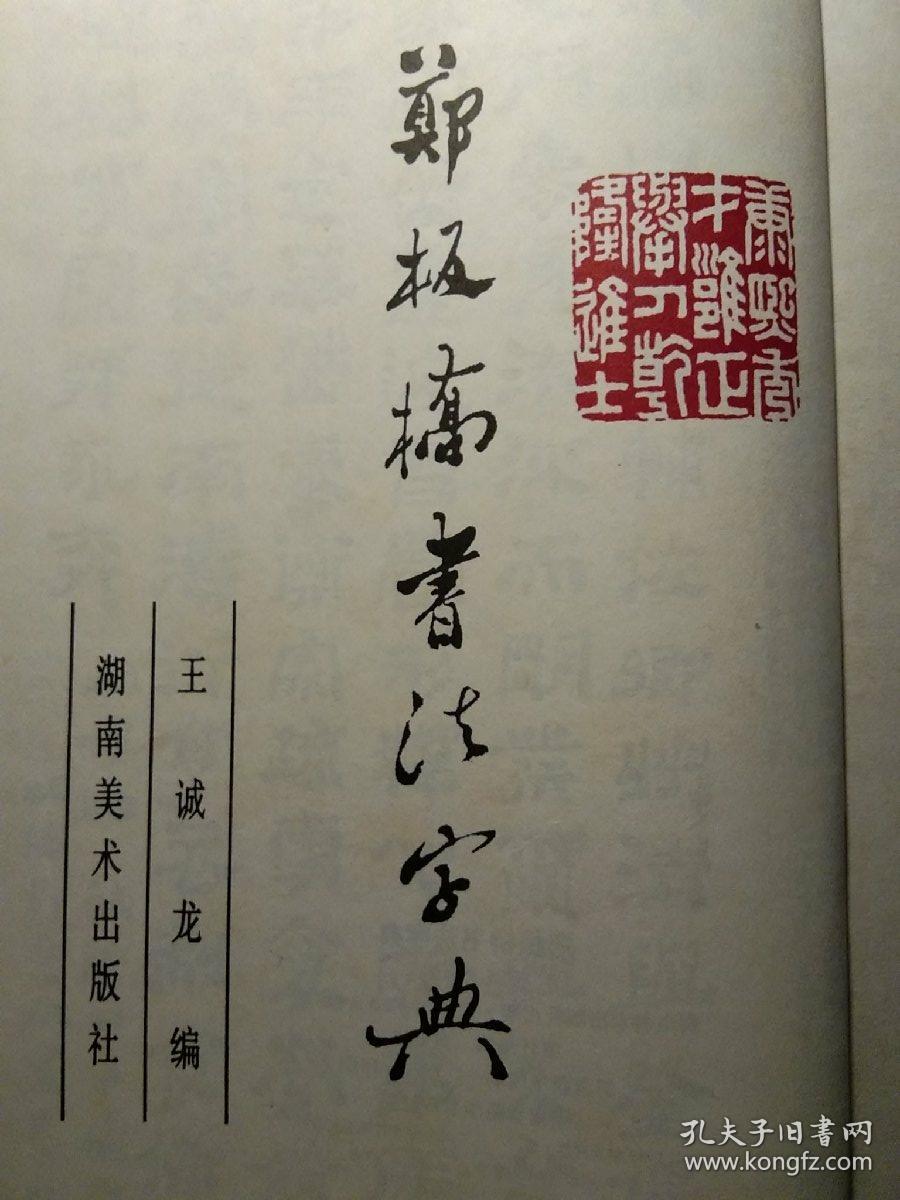 康熙秀
才雍正
舉人乾
隆進士
鄭板橋書法字典
王诚龙编
湖南美术出版社
孔夫子旧书网
www.kongfz.com